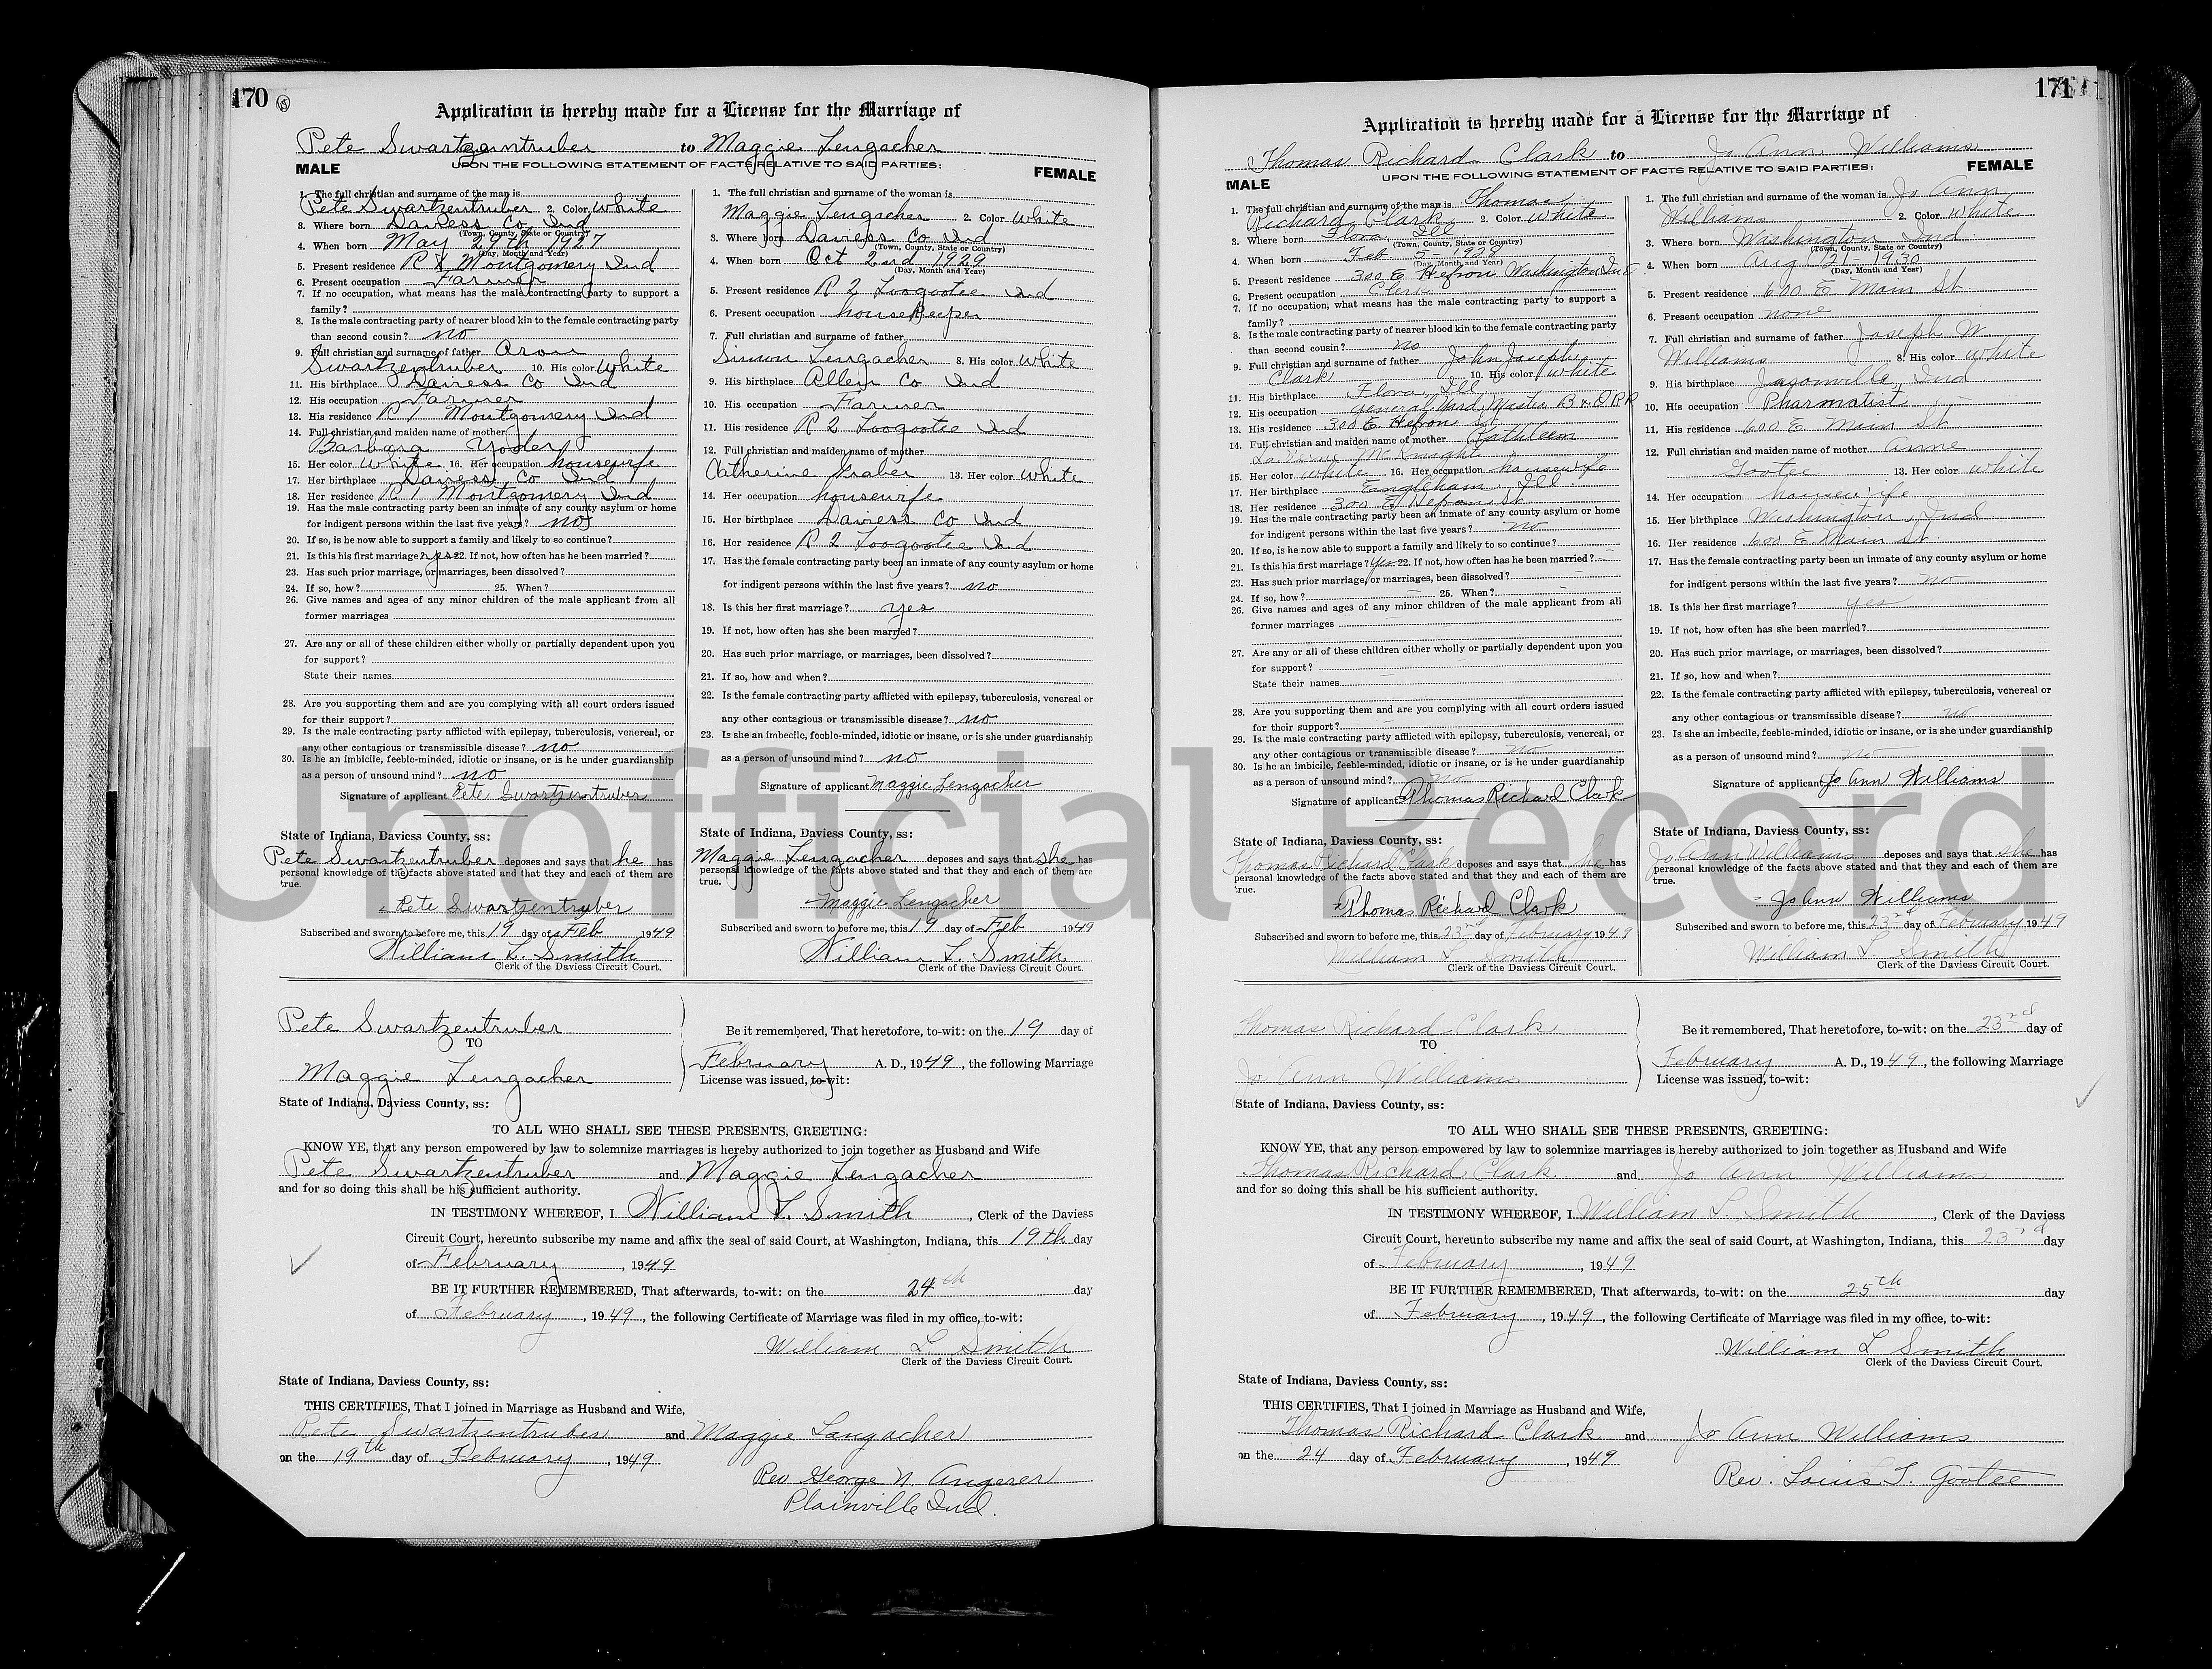 170
Application is hereby made for a License for the Marriage of
Pete Swartzentruber to Maggie Lengacher
MALE UPON THE FOLLOWING STATEMENT OF FACTS RELATIVE TO SAID PARTIES: FEMALE
1. The full christian and surname of the man is
Pete Swartzentruber 2. Color White
3. Where born Daviess Co Ind
(Town, County, State or Country)
4. When born May 29th 1927
(Day, Month and Year)
5. Present residence R 1 Montgomery Ind
6. Present occupation Farmer
7. If no occupation, what means has the male contracting party to support a
family?
8. Is the male contracting party of nearer blood kin to the female contracting party
than second cousin? no
9. Full christian and surname of father Aron
Swartzentruber 10. His color White
11. His birthplace Daviess Co Ind
12. His occupation Farmer
13. His residence R 1 Montgomery Ind
14. Full christian and maiden name of mother
Barbara Yoder
15. Her color White 16. Her occupation housewife
17. Her birthplace Daviess Co Ind
18. Her residence R 1 Montgomery Ind
19. Has the male contracting party been an inmate of any county asylum or home
for indigent persons within the last five years? no
20. If so, is he now able to support a family and likely to so continue?
21. Is this his first marriage? yes 22. If not, how often has he been married?
23. Has such prior marriage, or marriages, been dissolved?
24. If so, how? 25. When?
26. Give names and ages of any minor children of the male applicant from all
former marriages
27. Are any or all of these children either wholly or partially dependent upon you
for support?
State their names
28. Are you supporting them and are you complying with all court orders issued
for their support?
29. Is the male contracting party afflicted with epilepsy, tuberculosis, venereal, or
any other contagious or transmissible disease? no
30. Is he an imbicile, feeble-minded, idiotic or insane, or is he under guardianship
as a person of unsound mind? no
Signature of applicant Pete Swartzentruber
State of Indiana, Daviess County, ss:
Pete Swartzentruber deposes and says that he has
personal knowledge of the facts above stated and that they and each of them are
true.
Pete Swartzentruber
Subscribed and sworn to before me, this 19 day of Feb 1949
William L. Smith
Clerk of the Daviess Circuit Court.
1. The full christian and surname of the woman is
Maggie Lengacher 2. Color White
3. Where born Daviess Co Ind
(Town, County, State or Country)
4. When born Oct 2nd 1929
(Day, Month and Year)
5. Present residence R 2 Loogootee Ind
6. Present occupation housekeeper
7. Full christian and surname of father
Simon Lengacher 8. His color White
9. His birthplace Allen Co Ind
10. His occupation Farmer
11. His residence R 2 Loogootee Ind
12. Full christian and maiden name of mother
Catherine Graber 13. Her color White
14. Her occupation housewife
15. Her birthplace Daviess Co Ind
16. Her residence R 2 Loogootee Ind
17. Has the female contracting party been an inmate of any county asylum or home
for indigent persons within the last five years? no
18. Is this her first marriage? yes
19. If not, how often has she been married?
20. Has such prior marriage, or marriages, been dissolved?
21. If so, how and when?
22. Is the female contracting party afflicted with epilepsy, tuberculosis, venereal or
any other contagious or transmissible disease? no
23. Is she an imbecile, feeble-minded, idiotic or insane, or is she under guardianship
as a person of unsound mind? no
Signature of applicant Maggie Lengacher
State of Indiana, Daviess County, ss:
Maggie Lengacher deposes and says that she has
personal knowledge of the facts above stated and that they and each of them are
true.
Maggie Lengacher
Subscribed and sworn to before me, this 19 day of Feb 1949
William L. Smith
Clerk of the Daviess Circuit Court.
Pete Swartzentruber
TO
Maggie Lengacher
Be it remembered, That heretofore, to-wit: on the 19 day of
February A. D., 1949, the following Marriage
License was issued, to-wit:
State of Indiana, Daviess County, ss:
TO ALL WHO SHALL SEE THESE PRESENTS, GREETING:
KNOW YE, that any person empowered by law to solemnize marriages is hereby authorized to join together as Husband and Wife
Pete Swartzentruber and Maggie Lengacher
and for so doing this shall be his sufficient authority.
IN TESTIMONY WHEREOF, I William L. Smith, Clerk of the Daviess
Circuit Court, hereunto subscribe my name and affix the seal of said Court, at Washington, Indiana, this 19th day
of February, 1949
BE IT FURTHER REMEMBERED, That afterwards, to-wit: on the 24th day
of February, 1949, the following Certificate of Marriage was filed in my office, to-wit:
William L. Smith
Clerk of the Daviess Circuit Court.
State of Indiana, Daviess County, ss:
THIS CERTIFIES, That I joined in Marriage as Husband and Wife,
Pete Swartzentruber and Maggie Langacher
on the 19th day of February, 1949
Rev George N. Angerer
Plainville Ind.
171
Application is hereby made for a License for the Marriage of
Thomas Richard Clark to Jo Ann Williams
MALE UPON THE FOLLOWING STATEMENT OF FACTS RELATIVE TO SAID PARTIES: FEMALE
1. The full christian and surname of the man is Thomas
Richard Clark 2. Color White
3. Where born Flora, Ill
(Town, County, State or Country)
4. When born Feb. 5 - 1928
(Day, Month and Year)
5. Present residence 300 E Hefron Washington Ind
6. Present occupation Clerk
7. If no occupation, what means has the male contracting party to support a
family?
8. Is the male contracting party of nearer blood kin to the female contracting party
than second cousin? no
9. Full christian and surname of father John Joseph
Clark 10. His color white
11. His birthplace Flora, Ill
12. His occupation General Yard Master B & O RR
13. His residence 300 E Hefron St
14. Full christian and maiden name of mother Kathleen
McKnight
15. Her color white 16. Her occupation housewife
17. Her birthplace Ill
18. Her residence 300 E Hefron St
19. Has the male contracting party been an inmate of any county asylum or home
for indigent persons within the last five years? no
20. If so, is he now able to support a family and likely to so continue?
21. Is this his first marriage? Yes 22. If not, how often has he been married?
23. Has such prior marriage, or marriages, been dissolved?
24. If so, how? 25. When?
26. Give names and ages of any minor children of the male applicant from all
former marriages
27. Are any or all of these children either wholly or partially dependent upon you
for support?
State their names
28. Are you supporting them and are you complying with all court orders issued
for their support?
29. Is the male contracting party afflicted with epilepsy, tuberculosis, venereal, or
any other contagious or transmissible disease? no
30. Is he an imbicile, feeble-minded, idiotic or insane, or is he under guardianship
as a person of unsound mind? no
Signature of applicant Thomas Richard Clark
State of Indiana, Daviess County, ss:
Thomas Richard Clark deposes and says that he has
personal knowledge of the facts above stated and that they and each of them are
true.
Thomas Richard Clark
Subscribed and sworn to before me, this 23rd day of February 1949
William L Smith
Clerk of the Daviess Circuit Court.
1. The full christian and surname of the woman is Jo Ann
Williams 2. Color White
3. Where born Washington Ind
(Town, County, State or Country)
4. When born Aug 21 - 1930
(Day, Month and Year)
5. Present residence 600 E Main St
6. Present occupation none
7. Full christian and surname of father Joseph W.
Williams 8. His color white
9. His birthplace Jasonville, Ind
10. His occupation Pharmatist
11. His residence 600 E Main St
12. Full christian and maiden name of mother Anne
Gootee 13. Her color white
14. Her occupation housewife
15. Her birthplace Washington, Ind
16. Her residence 600 E Main St.
17. Has the female contracting party been an inmate of any county asylum or home
for indigent persons within the last five years? no
18. Is this her first marriage? yes
19. If not, how often has she been married?
20. Has such prior marriage, or marriages, been dissolved?
21. If so, how and when?
22. Is the female contracting party afflicted with epilepsy, tuberculosis, venereal or
any other contagious or transmissible disease? no
23. Is she an imbecile, feeble-minded, idiotic or insane, or is she under guardianship
as a person of unsound mind? no
Signature of applicant Jo Ann Williams
State of Indiana, Daviess County, ss:
Jo Ann Williams deposes and says that she has
personal knowledge of the facts above stated and that they and each of them are
true.
Jo Ann Williams
Subscribed and sworn to before me, this 23rd day of February 1949
William L Smith
Clerk of the Daviess Circuit Court.
Thomas Richard Clark
TO
Jo Ann Williams
Be it remembered, That heretofore, to-wit: on the 23rd day of
February A. D., 1949, the following Marriage
License was issued, to-wit:
State of Indiana, Daviess County, ss:
TO ALL WHO SHALL SEE THESE PRESENTS, GREETING:
KNOW YE, that any person empowered by law to solemnize marriages is hereby authorized to join together as Husband and Wife
Thomas Richard Clark and Jo Ann Williams
and for so doing this shall be his sufficient authority.
IN TESTIMONY WHEREOF, I William L. Smith, Clerk of the Daviess
Circuit Court, hereunto subscribe my name and affix the seal of said Court, at Washington, Indiana, this 23rd day
of February, 1949
BE IT FURTHER REMEMBERED, That afterwards, to-wit: on the 25th day
of February, 1949, the following Certificate of Marriage was filed in my office, to-wit:
William L Smith
Clerk of the Daviess Circuit Court.
State of Indiana, Daviess County, ss:
THIS CERTIFIES, That I joined in Marriage as Husband and Wife,
Thomas Richard Clark and Jo Ann Williams
on the 24 day of February, 1949
Rev. Louis T. Gootee
Unofficial Record